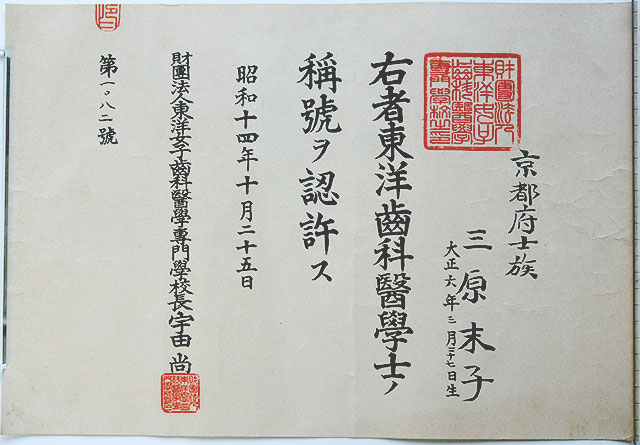 京都府士族
三原末子
大正六年二月二十七日生
右者東洋齒科醫學士ノ
稱號ヲ認許ス
昭和十四年十月二十五日
財團法人東洋女子齒科醫學專門學校長宇田尚
第一〇八二號